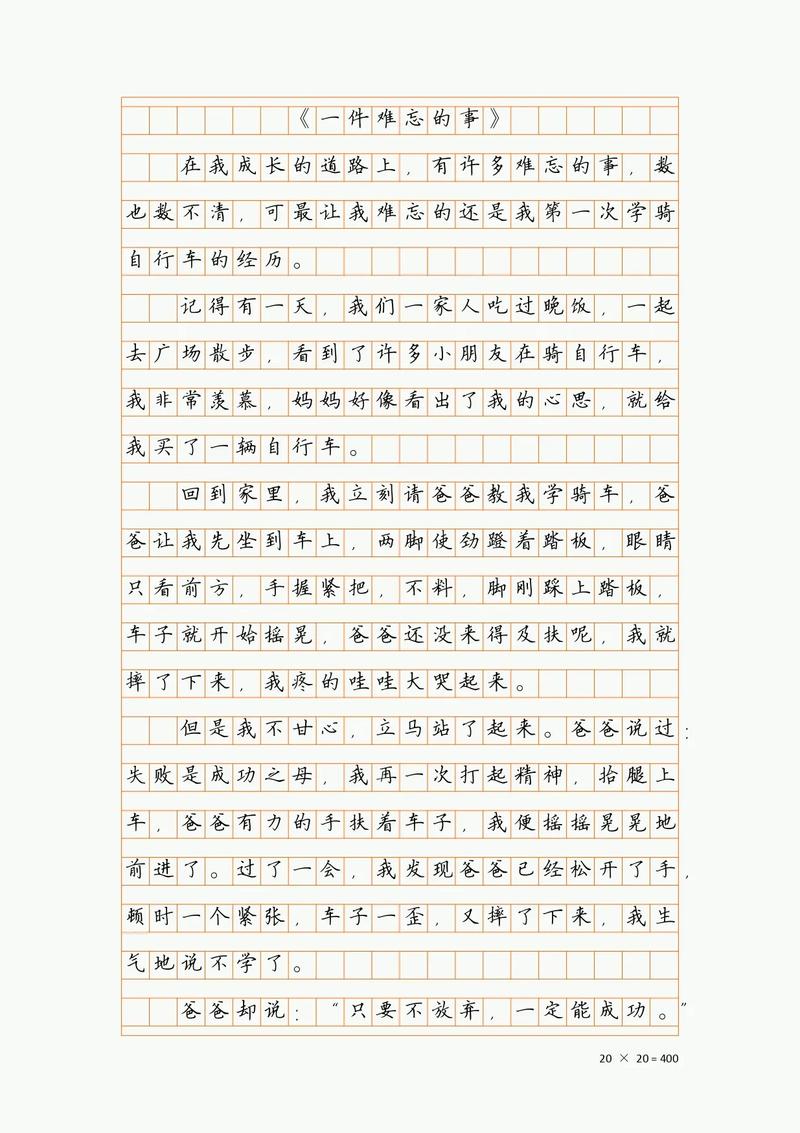 《一件难忘的事》
在我成长的道路上，有许多难忘的事，数
也数不清，可最让我难忘的还是我第一次学骑
自行车的经历。
记得有一天，我们一家人吃过晚饭，一起
去广场散步，看到了许多小朋友在骑自行车，
我非常羡慕，妈妈好像看出了我的心思，就给
我买了一辆自行车。
回到家里，我立刻请爸爸教我学骑车，爸
爸让我先坐到车上，两脚使劲蹬着踏板，眼睛
只看前方，手握紧把，不料，脚刚踩上踏板，
车子就开始摇晃，爸爸还没来得及扶呢，我就
摔了下来，我疼的哇哇大哭起来。
但是我不甘心，立马站了起来。爸爸说过：
失败是成功之母，我再一次打起精神，抬腿上
车，爸爸有力的手扶着车子，我便摇摇晃晃地
前进了。过了一会，我发现爸爸已经松开了手，
顿时一个紧张，车子一歪，又摔了下来，我生
气地说不学了。
爸爸却说：“只要不放弃，一定能成功。”
20 × 20 = 400